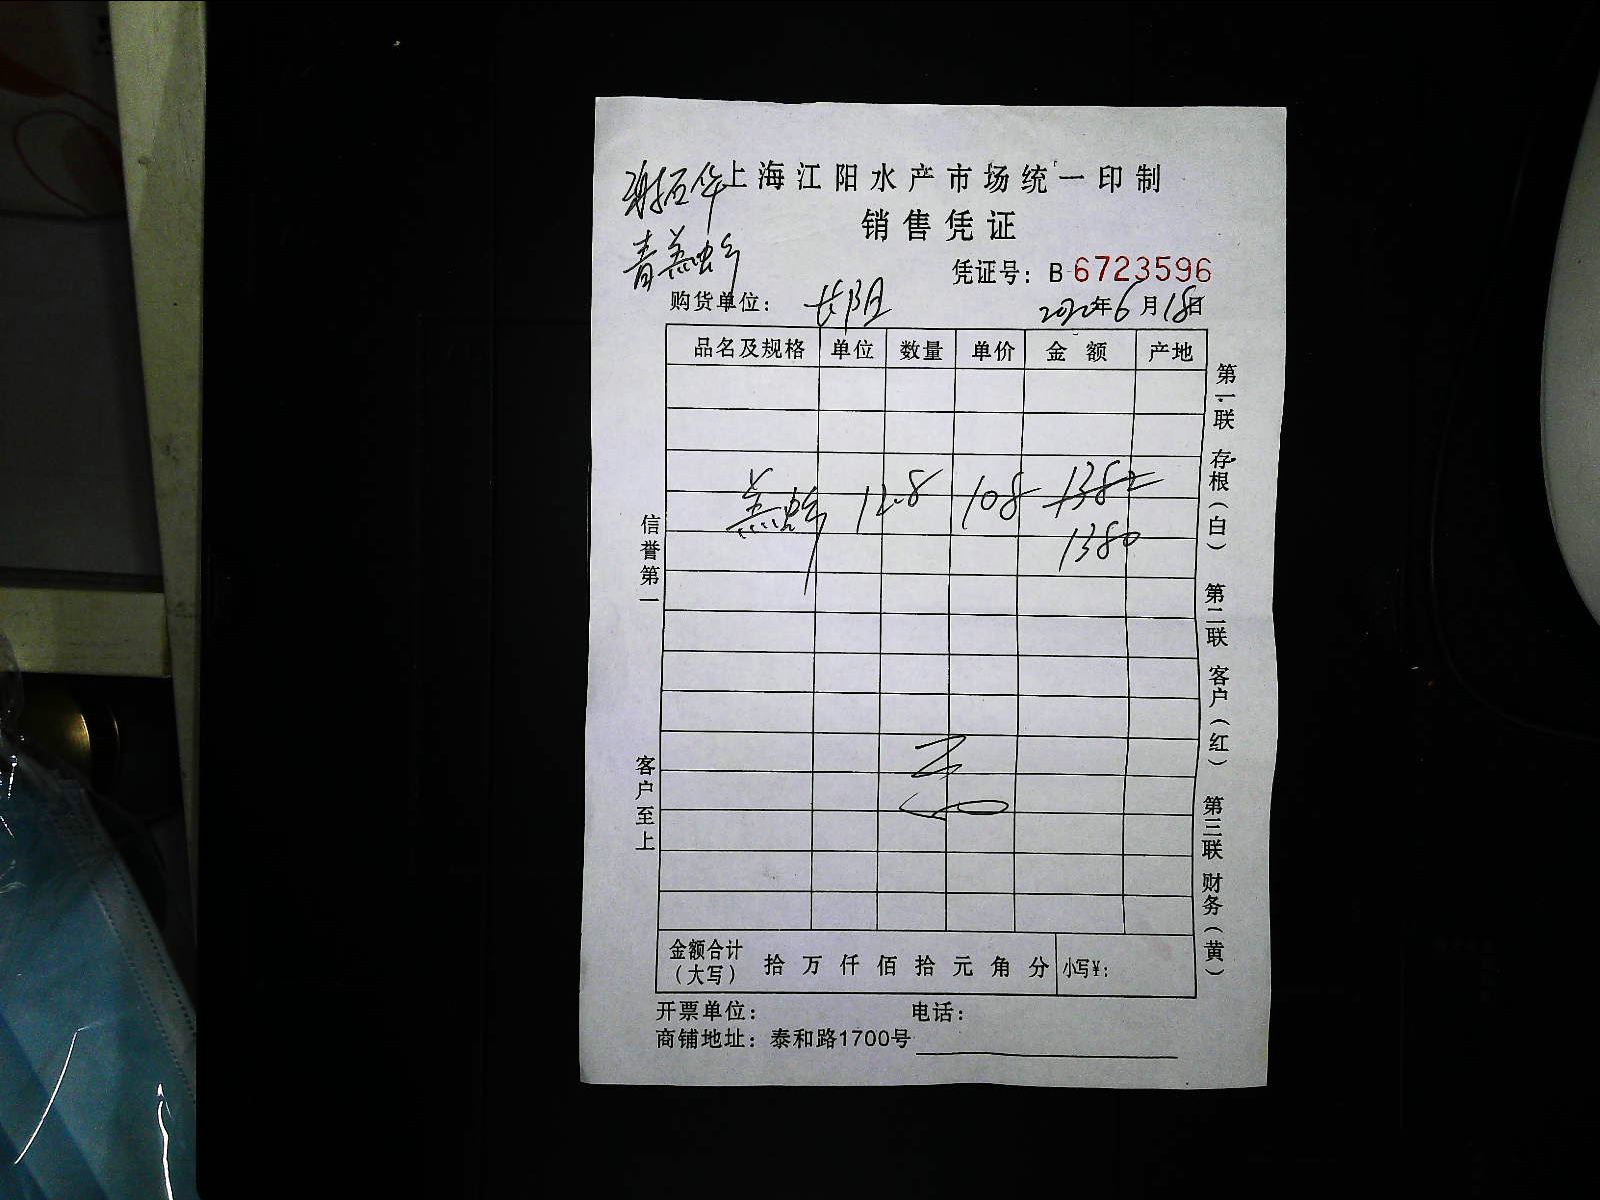 上海江阳水产市场统一印制
销售凭证
凭证号：B 6723596
购货单位： 长阳 2020年6月18日
品名及规格 单位 数量 单价 金额 产地
12.8 108 1382
1380
金额合计（大写） 拾 万 仟 佰 拾 元 角 分 小写¥：
开票单位： 电话：
商铺地址：泰和路1700号
信誉第一 客户至上
第一联 存根（白） 第二联 客户（红） 第三联 财务（黄）